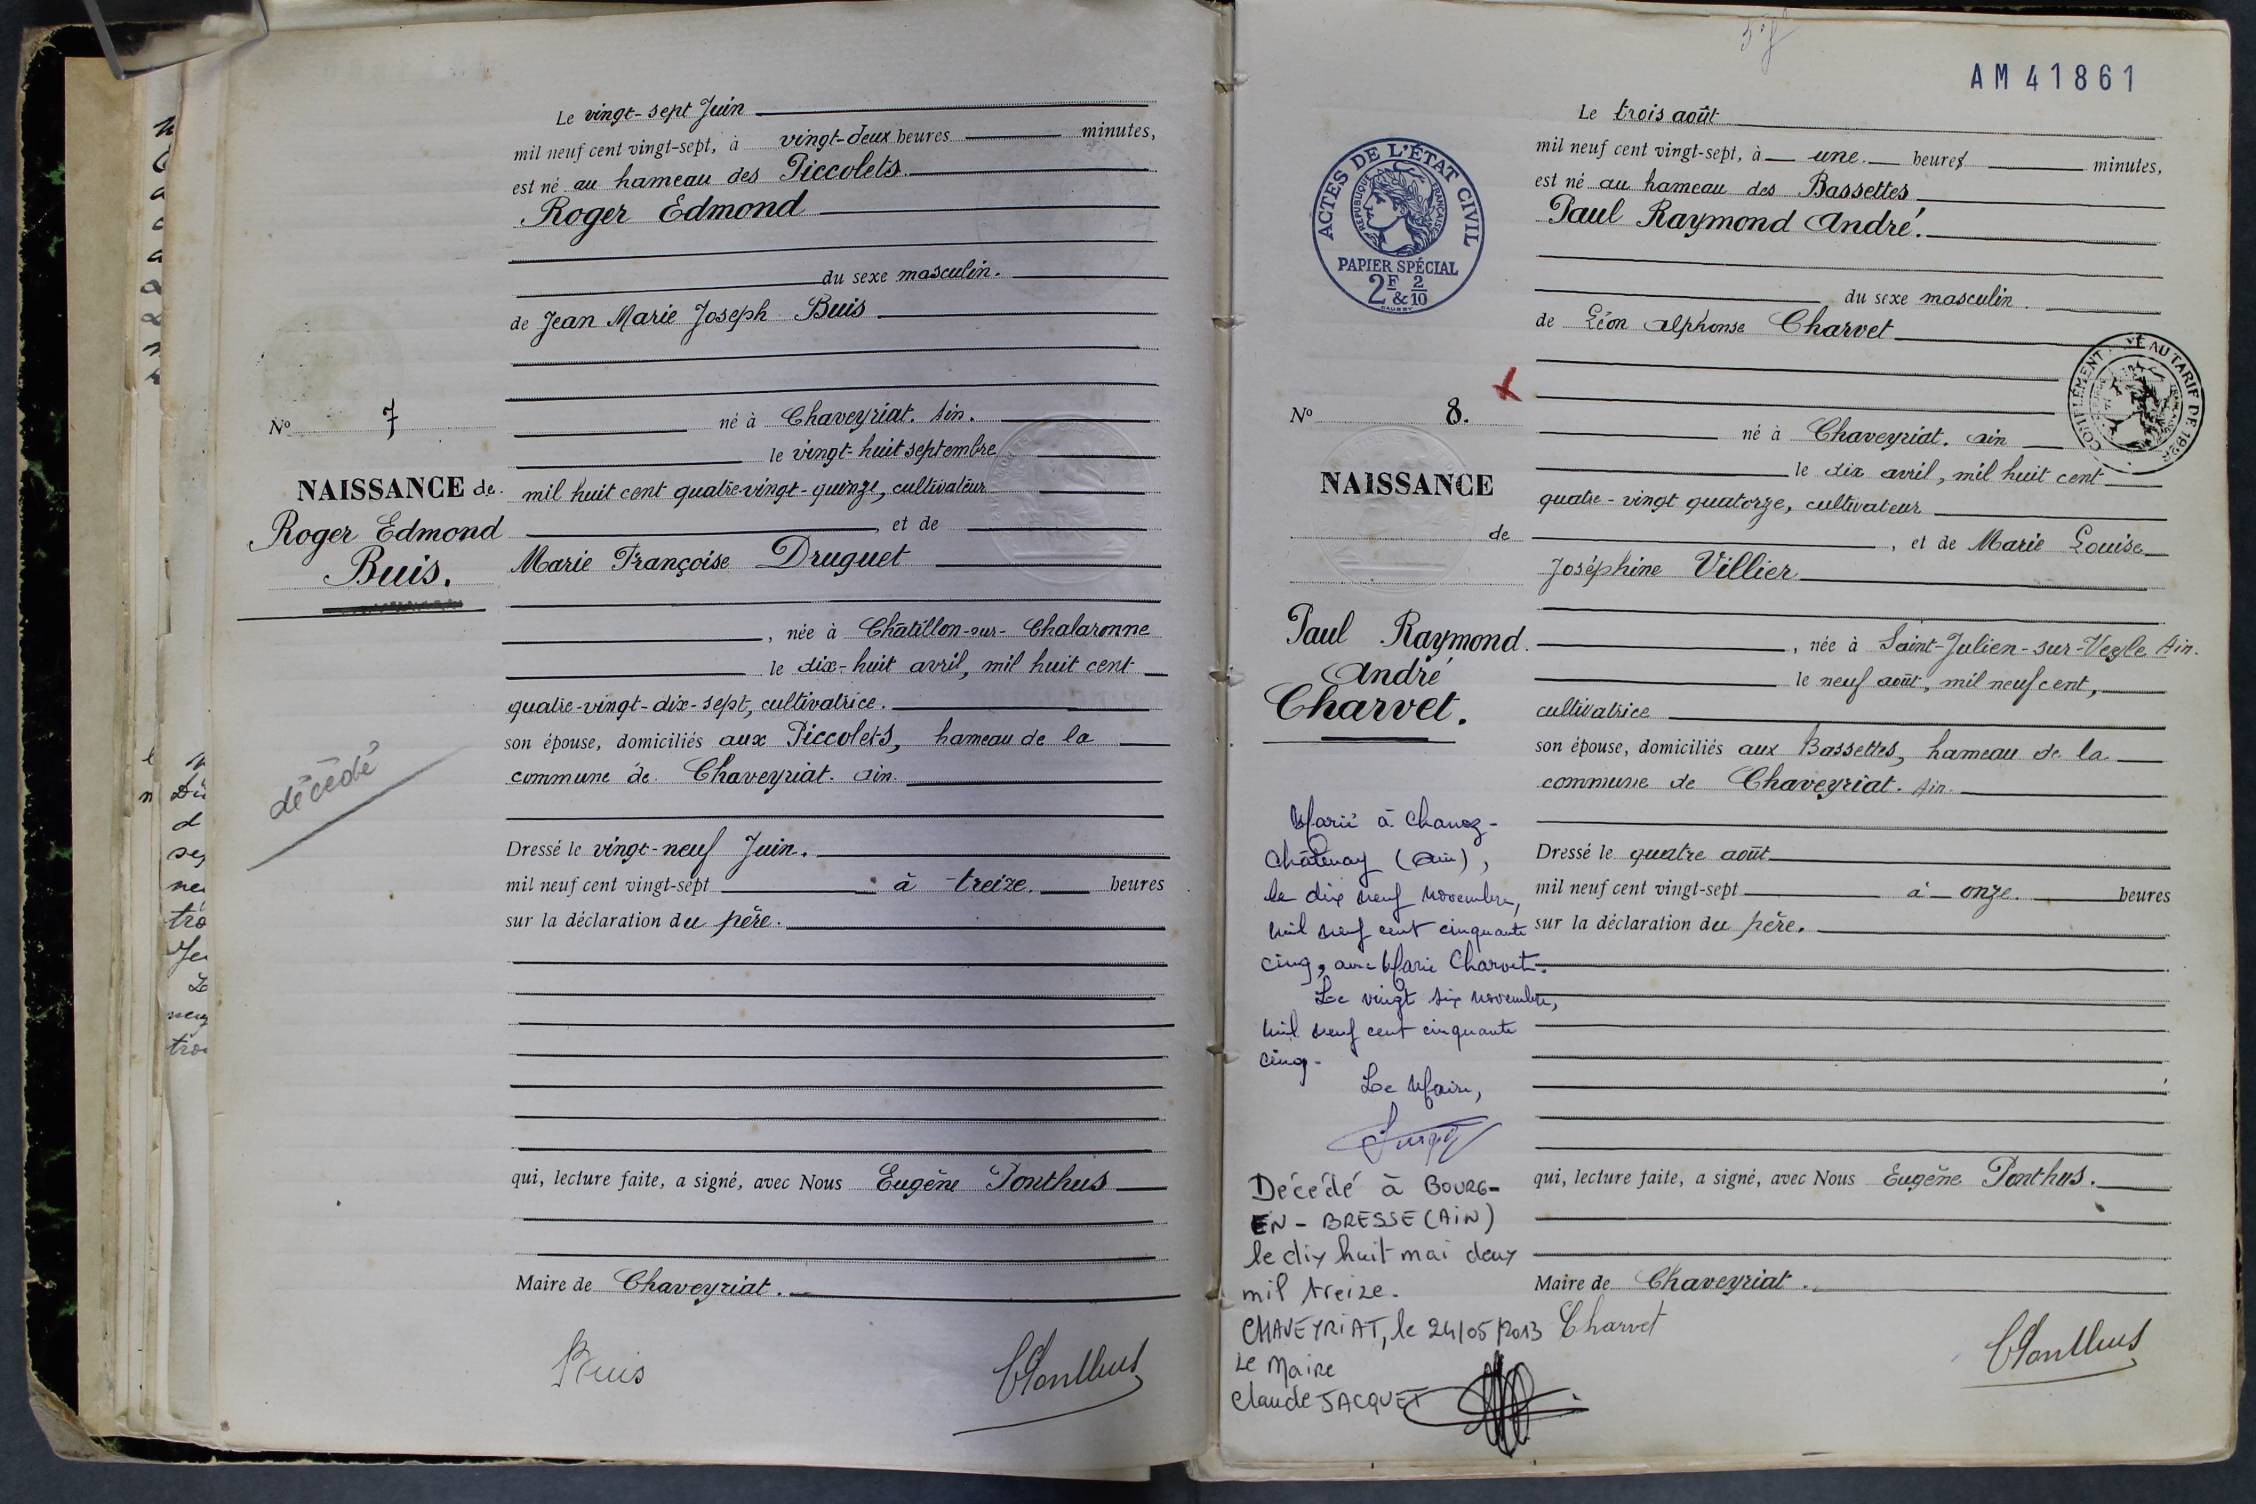 Le vingt-sept Juin
mil neuf cent vingt-sept, à vingt-deux heures minutes,
est né au hameau des Piccolets
Roger Edmond
du sexe masculin.
de Jean Marie Joseph Buis
né à Chaveyriat. Ain.
le vingt-huit septembre
mil huit cent quatre-vingt-quinze, cultivateur
, et de
Marie Françoise Druguet
, née à Châtillon-sur-Chalaronne
le dix-huit avril, mil huit cent
quatre-vingt-dix-sept, cultivatrice.
son épouse, domiciliés aux Piccolets, hameau de la
commune de Chaveyriat. Ain.
Dressé le vingt-neuf Juin.
mil neuf cent vingt-sept à treize heures
sur la déclaration du père.
qui, lecture faite, a signé, avec Nous Eugène Ponthus
Maire de Chaveyriat.
Buis
EPonthus
No 7
NAISSANCE de
Roger Edmond
Buis.
décédé
AM 41861
Le trois août
mil neuf cent vingt-sept, à une heures minutes,
est né au hameau des Bassettes
Paul Raymond André.
du sexe masculin.
de Léon Alphonse Charvet
né à Chaveyriat. Ain
le dix avril, mil huit cent
quatre-vingt quatorze, cultivateur
, et de Marie Louise
Joséphine Villier
, née à Saint-Julien-sur-Veyle Ain.
le neuf août, mil neuf cent,
cultivatrice
son épouse, domiciliés aux Bassettes, hameau de la
commune de Chaveyriat. Ain.
Dressé le quatre août
mil neuf cent vingt-sept à onze heures
sur la déclaration du père.
qui, lecture faite, a signé, avec Nous Eugène Ponthus.
Maire de Chaveyriat.
Charvet
EPonthus
ACTES DE L'ÉTAT CIVIL
RÉPUBLIQUE FRANÇAISE
PAPIER SPÉCIAL
2F & 2/10
COMPLÉMENT AU TARIF DE
No 8.
NAISSANCE
de
Paul Raymond
André
Charvet.
Marié à Chanoz-
Châtenay (Ain),
le dix neuf novembre,
mil neuf cent cinquante
cinq, avec Marie Charvet.
Le vingt six novembre,
mil neuf cent cinquante
cinq.
Le Maire,
Décédé à BOURG-
EN-BRESSE (AIN)
le dix huit mai deux
mil treize.
CHAVEYRIAT, le 24/05/2013
Le Maire
Claude JACQUET